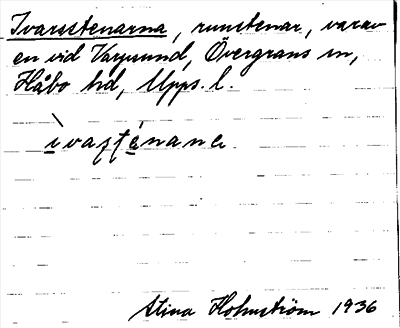 Ivarsstenarna, runstenar, varav
en vid Varpsund, Övergrans sn,
Håbo hd, Upps. l.
Stina Holmström 1936